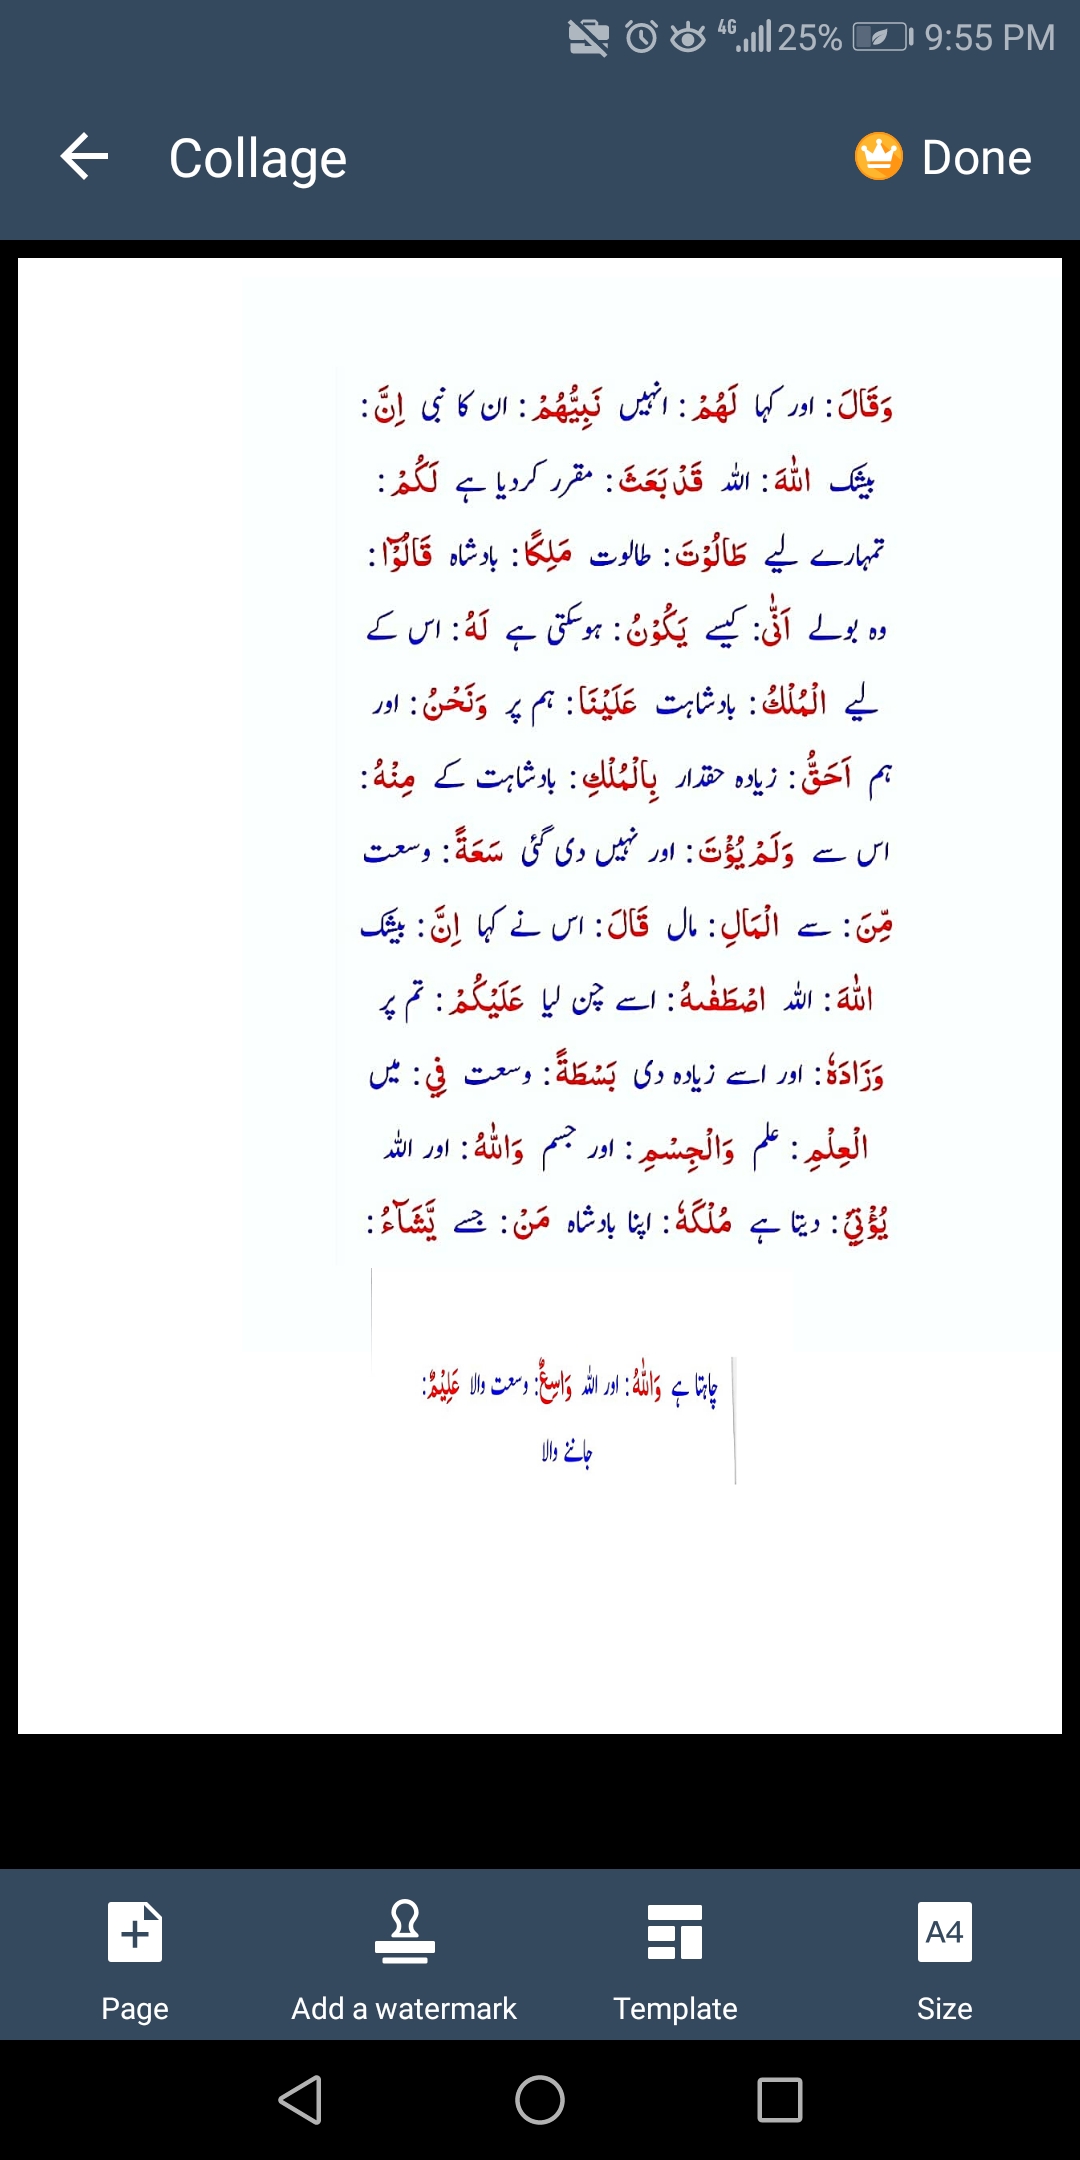 4G 25% 9:55 PM
Collage Done
وَقَالَ : اور کہا لَهُمْ : انہیں نَبِيُّهُمْ : ان کا نبی اِنَّ :
بیشک اللّٰهَ : اللہ قَدْ بَعَثَ : مقرر کردیا ہے لَكُمْ :
تمہارے لیے طَالُوْتَ : طالوت مَلِكًا : بادشاہ قَالُوْٓا :
وہ بولے اَنّٰى : کیسے يَكُوْنُ : ہوسکتی ہے لَهُ : اس کے
لیے الْمُلْكُ : بادشاہت عَلَيْنَا : ہم پر وَنَحْنُ : اور
ہم اَحَقُّ : زیادہ حقدار بِالْمُلْكِ : بادشاہت کے مِنْهُ :
اس سے وَلَمْ يُؤْتَ : اور نہیں دی گئی سَعَةً : وسعت
مِّنَ : سے الْمَالِ : مال قَالَ : اس نے کہا اِنَّ : بیشک
اللّٰهَ : اللہ اصْطَفٰىهُ : اسے چن لیا عَلَيْكُمْ : تم پر
وَزَادَهٗ : اور اسے زیادہ دی بَسْطَةً : وسعت فِي : میں
الْعِلْمِ : علم وَالْجِسْمِ : اور جسم وَاللّٰهُ : اور اللہ
يُؤْتِيْ : دیتا ہے مُلْكَهٗ : اپنا بادشاہ مَنْ : جسے يَّشَآءُ :
چاہتا ہے وَاللّٰهُ : اور اللہ وَاسِعٌ : وسعت والا عَلِيْمٌ :
جاننے والا
A4
Page Add a watermark Template Size